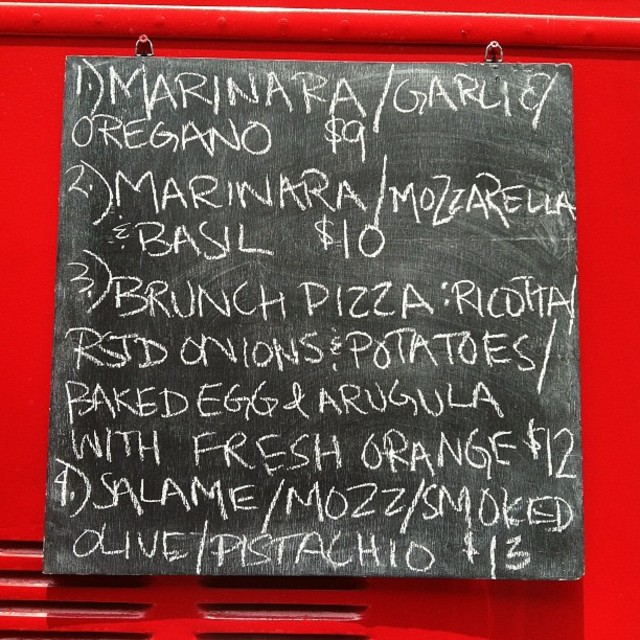 1.) MARINARA/GARLIC/
OREGANO $9
2.) MARINARA/MOZZARELLA
& BASIL $10
3.) BRUNCH PIZZA: RICOTTA/
RSTD ONIONS & POTATOES/
BAKED EGG & ARUGULA
WITH FRESH ORANGE $12
4.) SALAME/MOZZ/SMOKED
OLIVE/PISTACHIO $13